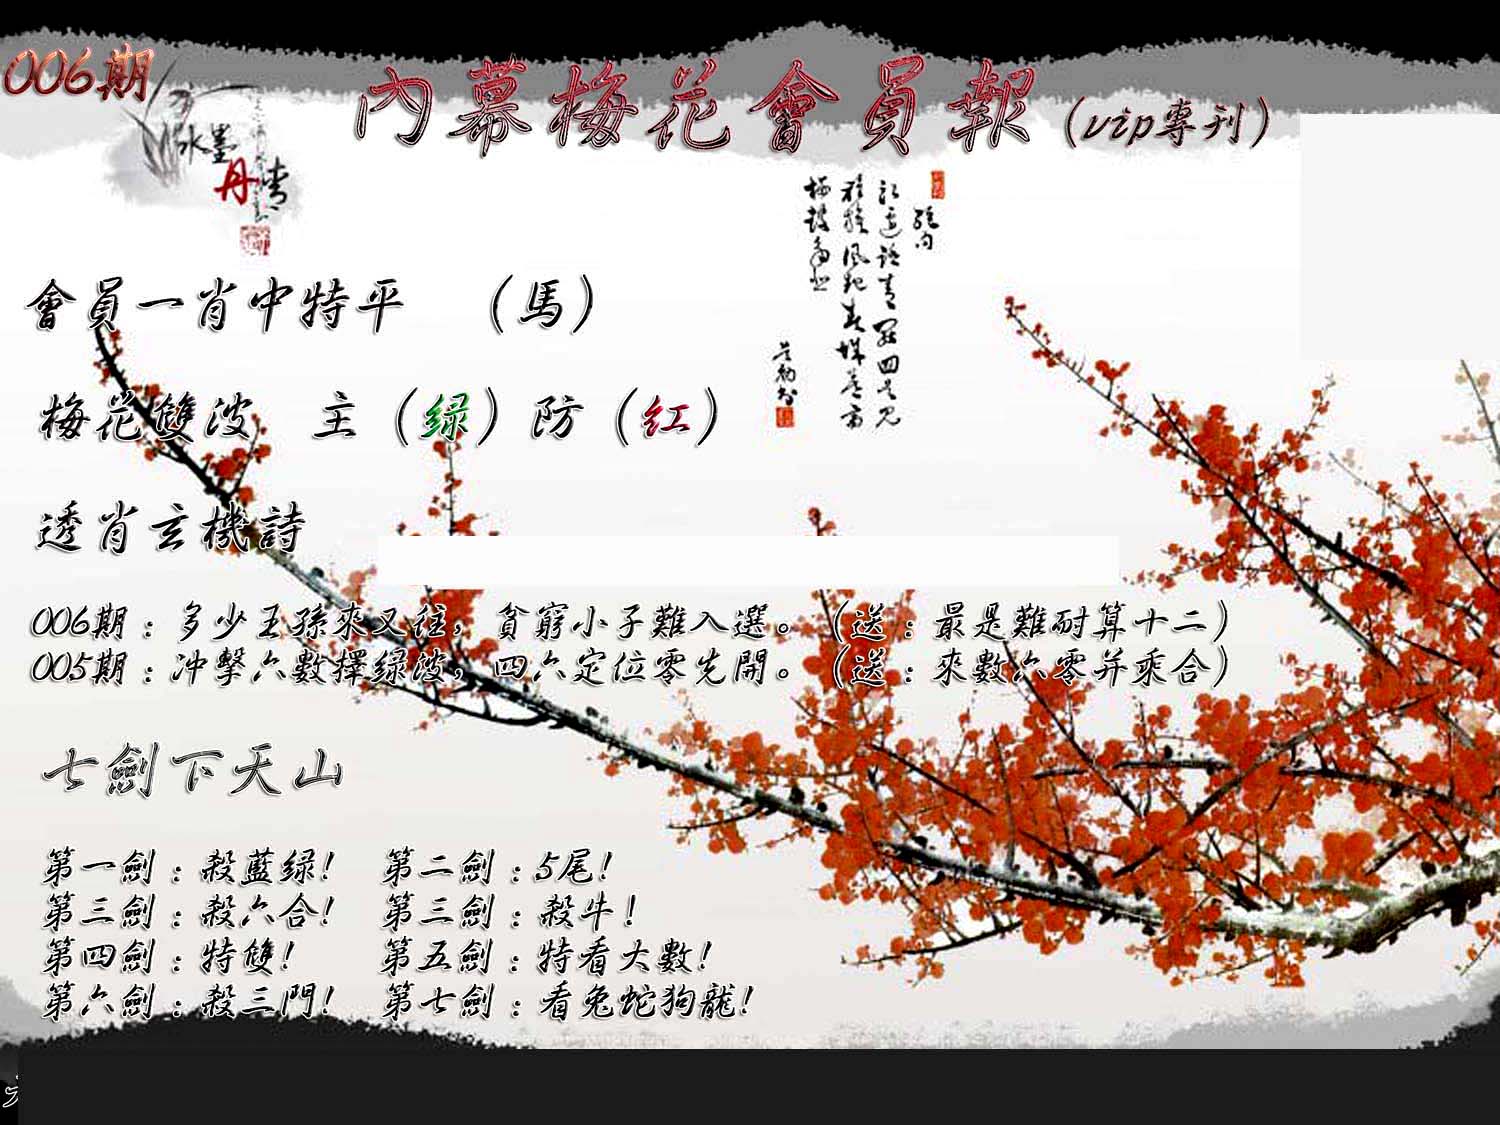 006期
內幕梅花會員報（vip專刊）
水墨
丹青
會員一肖中特平 （馬）
梅花雙波 主（绿）防（红）
透肖玄機詩
006期：多少王孫來又往，貧窮小子難入選。（送：最是難耐算十二）
005期：冲擊六數擇绿波，四六定位零先開。（送：來數六零并乘合）
七劍下天山
第一劍：殺藍绿！ 第二劍：5尾！
第三劍：殺六合！ 第三劍：殺牛！
第四劍：特雙！ 第五劍：特看大數！
第六劍：殺三門！ 第七劍：看兔蛇狗龍！